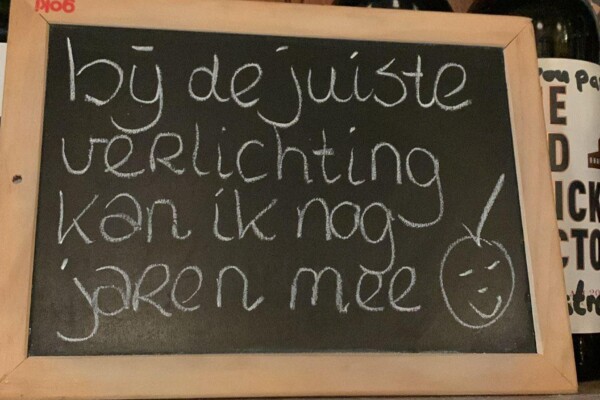 gold
bij de juiste
verlichting
kan ik nog
jaren mee
you pa
E
D
ICK
CTO